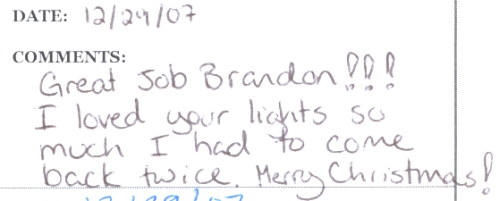 DATE: 12/29/07
COMMENTS:
Great Job Brandon!!!
I loved your lights so
much I had to come
back twice. Merry Christmas!